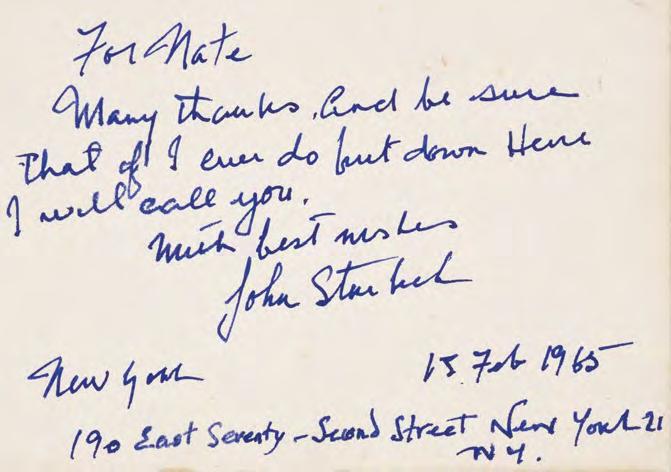 For Nate
Many thanks. And be sure
that if I ever do put down Here
I will call you.
With best wishes
John Steinbeck
New York 15 Feb 1965
190 East Seventy-Second Street New York 21
N.Y.